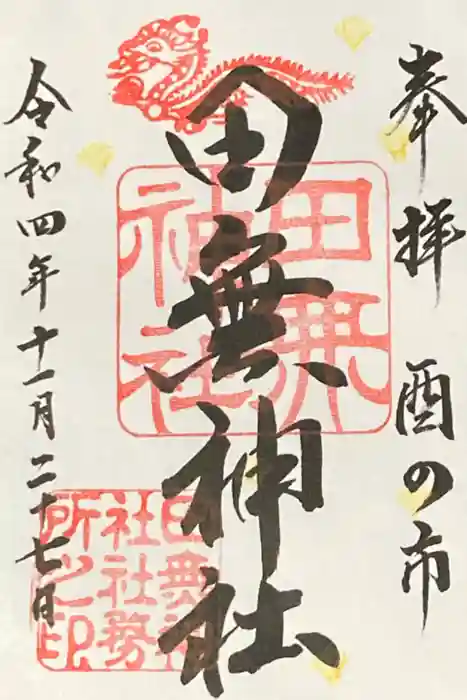 奉拝 酉の市
田無神社
令和四年十一月二十七日
田無神社
田無神社社務所之印